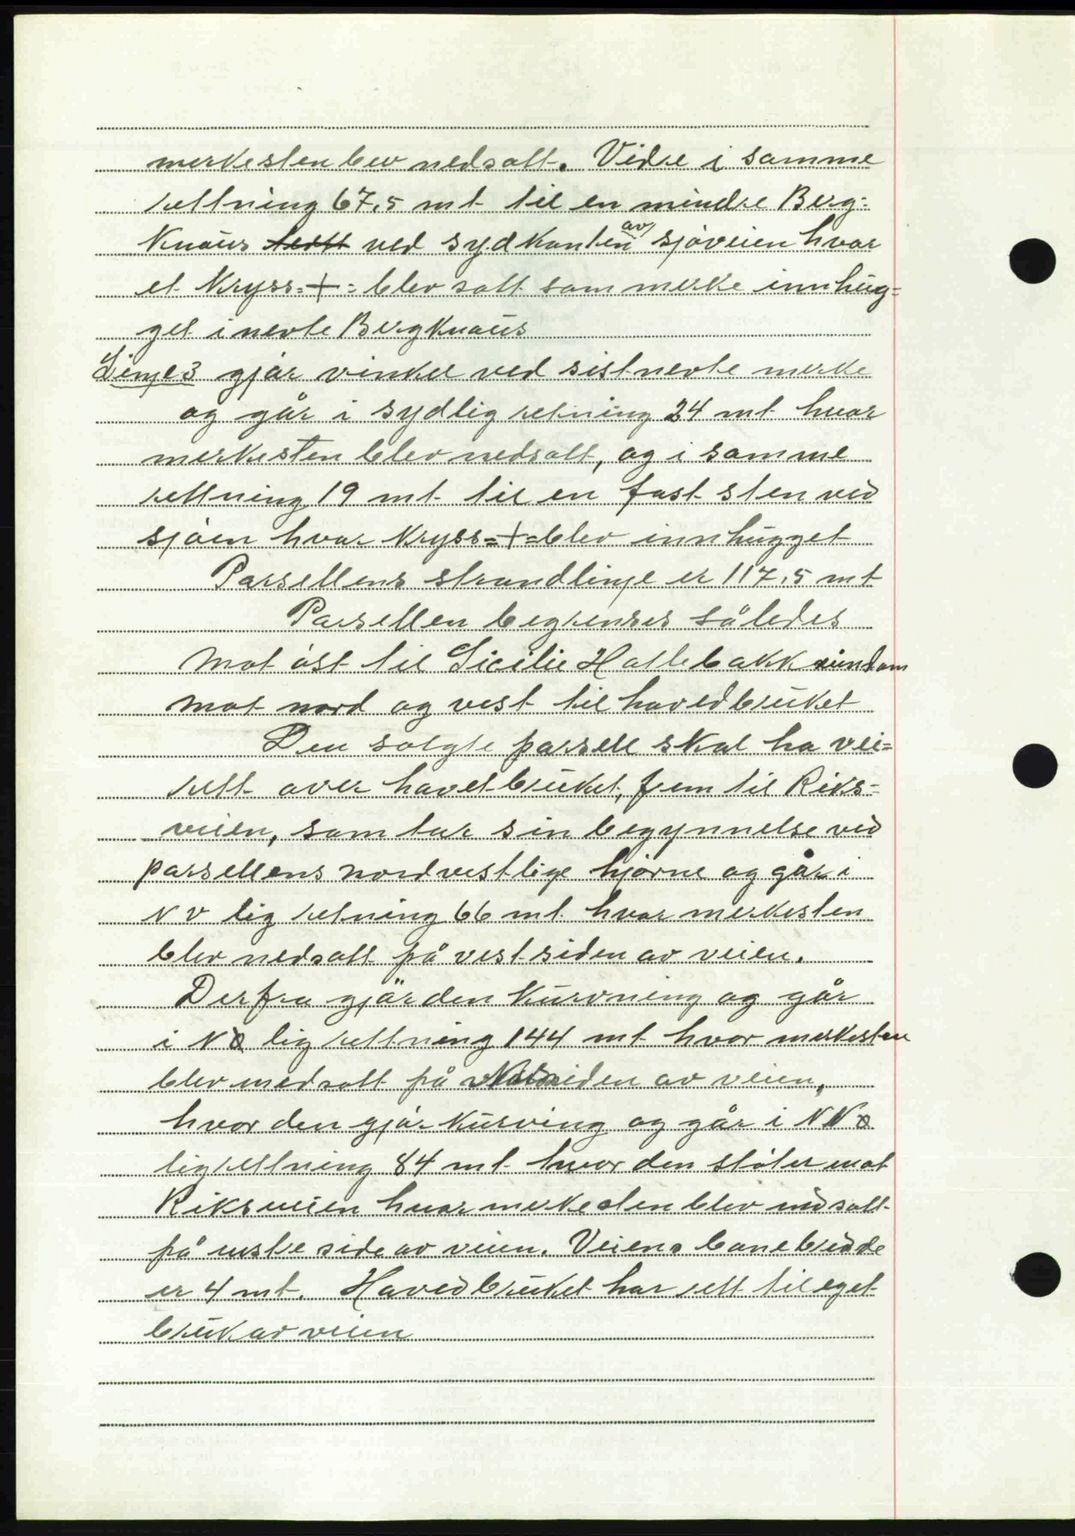 merkesten blev nedsatt. Vidre i samme
rettning 67,5 mt til en mindre Berg=
Knaus ved sydkanten av sjøveien hvor
et Kryss=+= blev satt som merke innhug=
get i nevte Bergknaus
Linje 3 gjør vinkel ved sistnevte merke
og går i sydlig retning 24 mt hvor
merkesten blev nedsatt, og i samme
rettning 19 mt til en fast sten ved
sjøen hvor Kryss=+=blev innhugget
Parsellens strandlinje er 117,5 mt
Parsellen begrenses således
Mot øst til Sicilie Hatlebakk
mot nord og vest til hovedbruket
Den solgte parsell skal ha vei=
rett over hovetbruket, frem til Riks=
veien, som tar sin begynnelse ved
parsellens nordvestlige hjørne og går i
N V lig retning 66 mt hvor merkesten
blev nedsatt på vestsiden av veien.
Derfra gjør den Kurvning og går
i NØ lig rettning 144 mt hvor merkesten
blev nedsatt på siden av veien,
hvor den gjør Kurving og går i NNØ
lig rettning 84 mt hvor den støter mot
Riksveien hvor merkesten blev nedsatt
på østre side av veien. Veiens banebredde
er 4 mt. Hovedbruket har rett til eget
bruk av veien